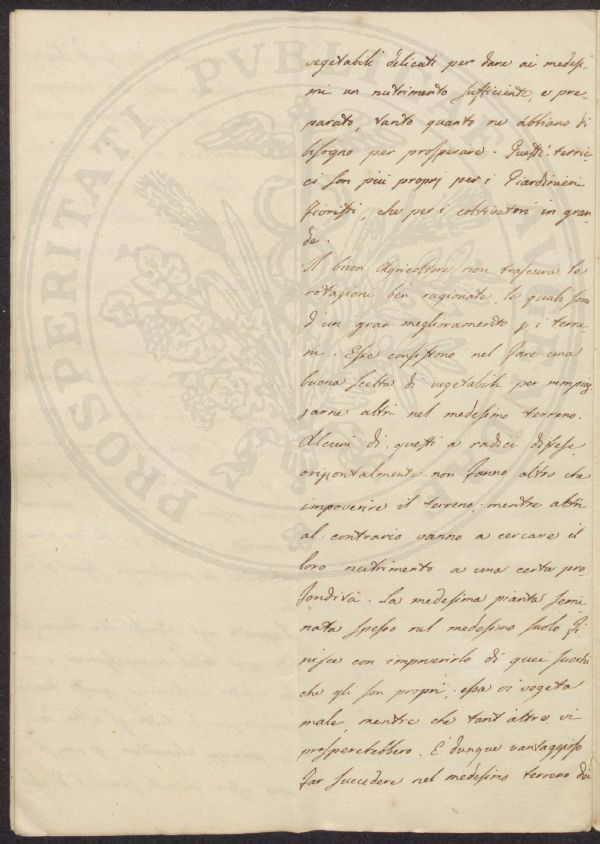 vegetabili delicati per dare ai medesi
mi un nutrimento sufficiente, e pre-
parato, tanto quanto ne abbiano di
bisogno per prosperare. Questi terric
ci son più propri per i Giardinieri
fioristi, che per i coltivatori in gran
de.
Il buon Agricoltore non trascura le
rotazioni ben ragionate, le quali sono
d'un gran miglioramento p i terre
ni. Esse consistono nel fare una
buona scelta di vegetabili per rimpiaz
zarne altri nel medesimo terreno.
Alcuni di questi a radici distese
orizontalmente non fanno altro che
impoverire il terreno, mentre altri
al contrario vanno a cercare il
loro nutrimento a una certa pro
fondità. La medesima pianta semi
nata spesso nel medesimo suolo fi
nisce con impoverirlo di quei succhi
che gli son propri, essa vi vegeta
male mentre che tant'altre vi
prospererebbero. È dunque vantaggioso
far succedere nel medesimo terreno dei
PROSPERITATI PVBLICAE